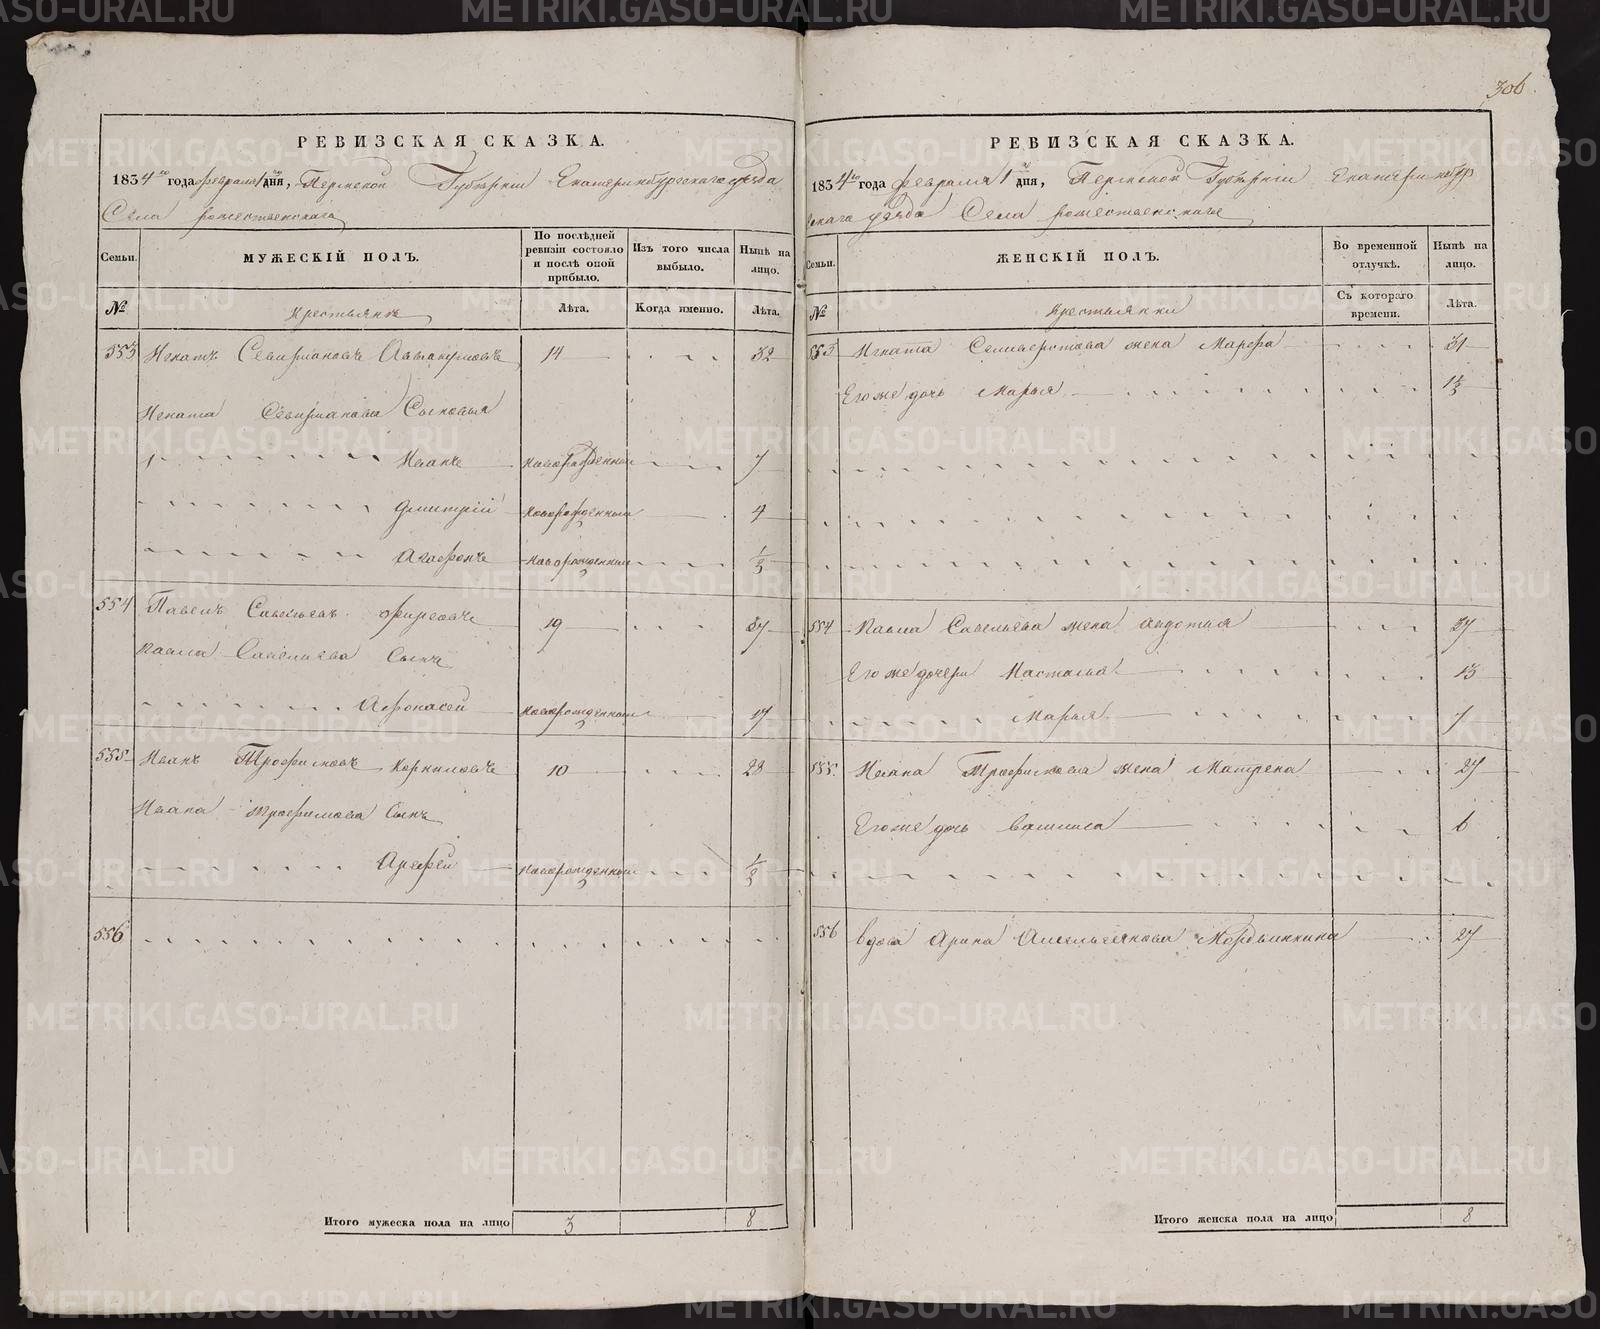 РЕВИЗСКАЯ СКАЗКА.
1834го года февраля 1 дня, Пермской Губернии Екатеринбургскаго уезда
Села рожественскаго
Семьи.
МУЖЕСКІЙ ПОЛЪ.
По послѣдней ревизіи состояло и послѣ оной прибыло.
Изъ того числа выбыло.
Нынѣ на лицо.
№
Крестьянъ
Лѣта.
Когда именно.
Лѣта.
553 Игнатъ 14 32
Игната Сыновья
Иванъ новорожденный 7
Дмитрій новорожденный 4
Агафонъ новорожденный 1/3
554 Павелъ Савельевъ Фирсовъ 19 37
Павла Савельева Сынъ
Афонасей новорожденный 17
555 Иванъ Трофимовъ Корниловъ 10 28
Ивана трофимова Сынъ
Арефей новорожденный
556
Итого мужеска пола на лицо 3 8
306
РЕВИЗСКАЯ СКАЗКА.
1834го года февраля 1 дня, Пермской Губерніи Екатеринбур
скаго уезда Села рожественскаго
Семьи.
ЖЕНСКІЙ ПОЛЪ.
Во временной отлучкѣ.
Нынѣ на лицо.
№
Крестьянки
Съ котораго времени.
Лѣта.
553 Игната Селиверстова жена Марфа 31
Его же дочь Марья 13
554 Павла Савельева жена Авдотья 37
Его же дочери Настасья 13
Марья 7
555 Ивана Трофимова жена Матрена 27
Его же дочь Василиса 6
556 вдова Арина Мордвинкина 27
Итого женска пола на лицо 8
METRIKI.GASO-URAL.RU